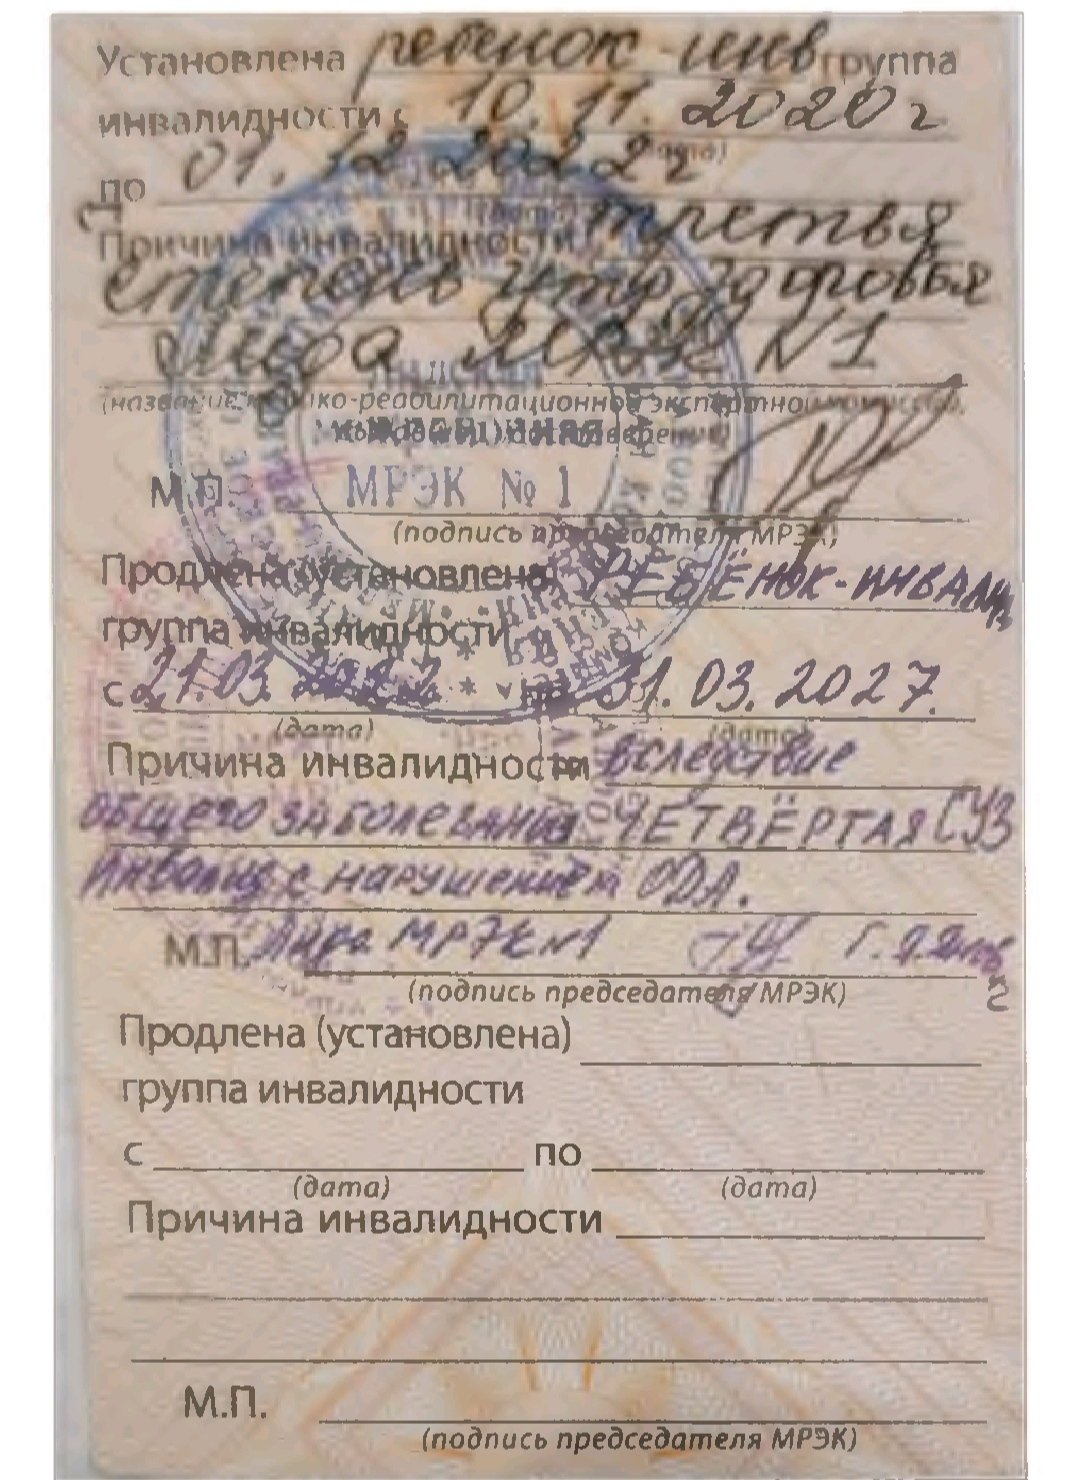 Установлена ребенок-инв группа
инвалидности с 10.11.2020г
(дата)
по 01.12.2022г
(дата)
Причина инвалидности третья
степень утр здоровья
МРЭК №1
(название медико-реабилитационной экспертной комиссии,
М.П. МРЭК № 1
(подпись председателя МРЭК)
Продлена (установлена) РЕБЁНОК-ИНВАЛИД
группа инвалидности
с 21.03.2022 по 31.03.2027.
(дата) (дата)
Причина инвалидности вследствие
общего заболевания ЧЕТВЁРТАЯ СУЗ
Инвалид с нарушением ОДА.
М.П. МРЭК №1
(подпись председателя МРЭК)
Продлена (установлена)
группа инвалидности
с по
(дата) (дата)
Причина инвалидности
М.П.
(подпись председателя МРЭК)